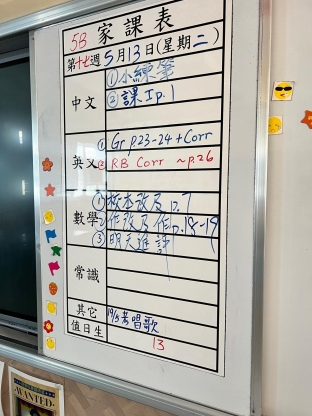 5B 家課表
第十七週5月13日(星期二)
中文
①小練筆
②課Ip.1
英文
① Gr p.23-24 + Corr
② RB Corr ~p.26
數學
① 板本改及p.7
② 作改及作p.18-19
③ 明天進評
常識
其它
19/5考唱歌
值日生
13
WANTED